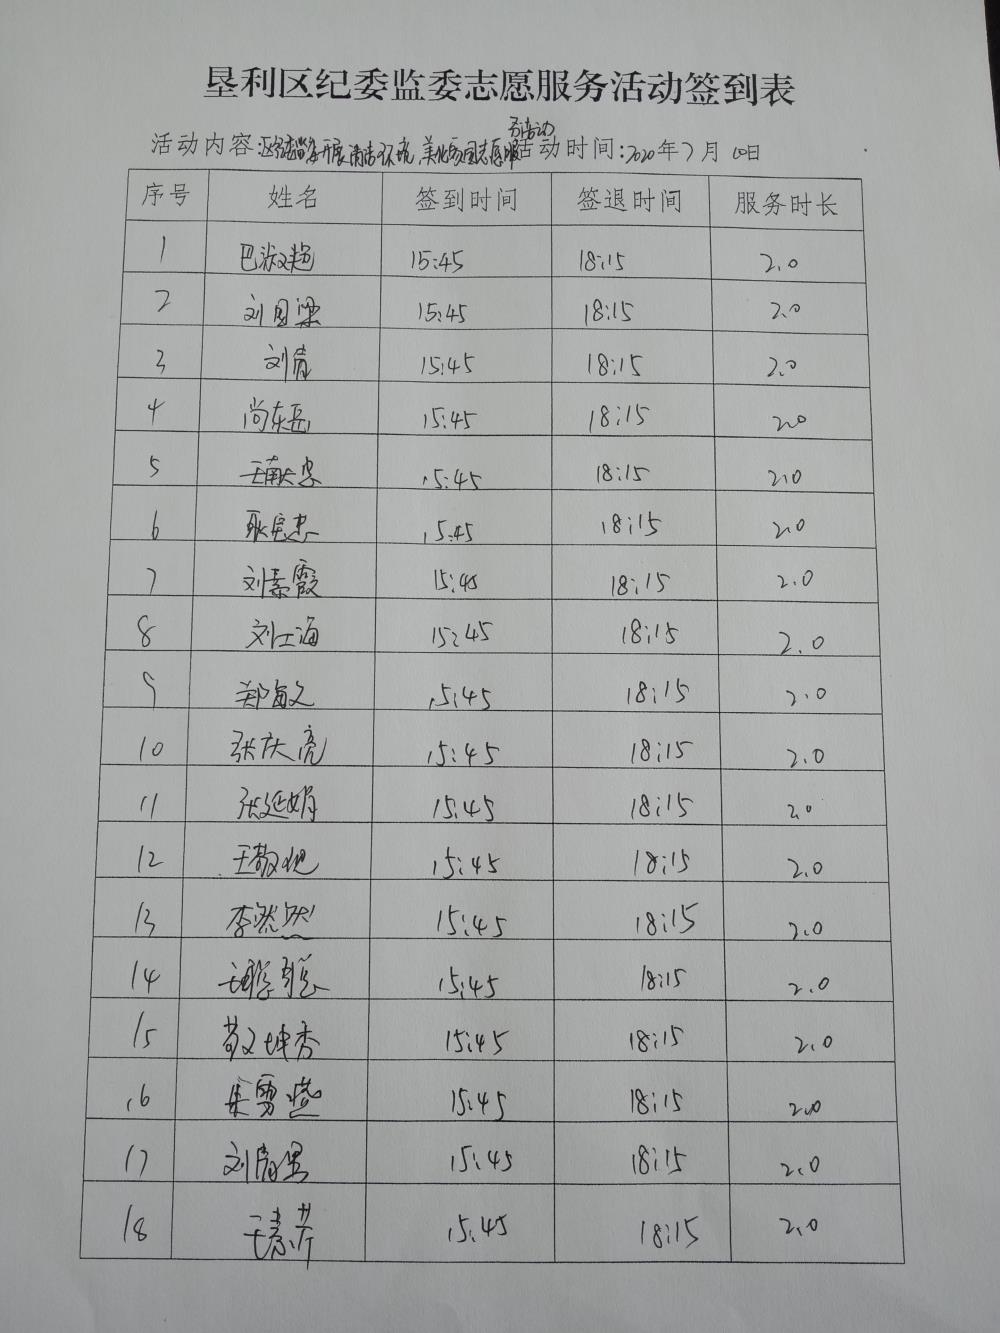 垦利区纪委监委志愿服务活动签到表
务活动
活动内容:区纪委监委开展清洁环境,美化家园志愿服 活动时间:2020年7月10日
序号 姓名 签到时间 签退时间 服务时长
1 巴淑超 15:45 18:15 2.0
2 刘国梁 15:45 18:15 2.0
3 刘青 15:45 18:15 2.0
4 尚东岳 15:45 18:15 2.0
5 15:45 18:15 2.0
6 耿宪忠 15:45 18:15 2.0
7 刘素霞 15:45 18:15 2.0
8 刘江海 15:45 18:15 2.0
9 郑海文 15:45 18:15 2.0
10 张庆亮 15:45 18:15 2.0
11 张延娟 15:45 18:15 2.0
12 王敬 15:45 18:15 2.0
13 李燃燃 15:45 18:15 2.0
14 15:45 18:15 2.0
15 苟坤秀 15:45 18:15 2.0
16 雪燕 15:45 18:15 2.0
17 刘青 15:45 18:15 2.0
18 王素芹 15:45 18:15 2.0